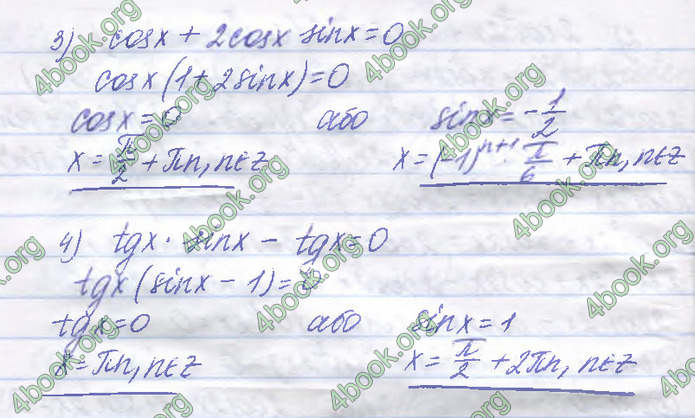 3) cosx + 2cosx sinx = 0
cosx(1 + 2sinx) = 0
cosx = 0 або sinx = -1/2
x = π/2 + πn, n∈Z x = (-1)^(n+1) · π/6 + πn, n∈Z
4) tgx · sinx - tgx = 0
tgx(sinx - 1) = 0
tgx = 0 або sinx = 1
x = πn, n∈Z x = π/2 + 2πn, n∈Z
4book.org